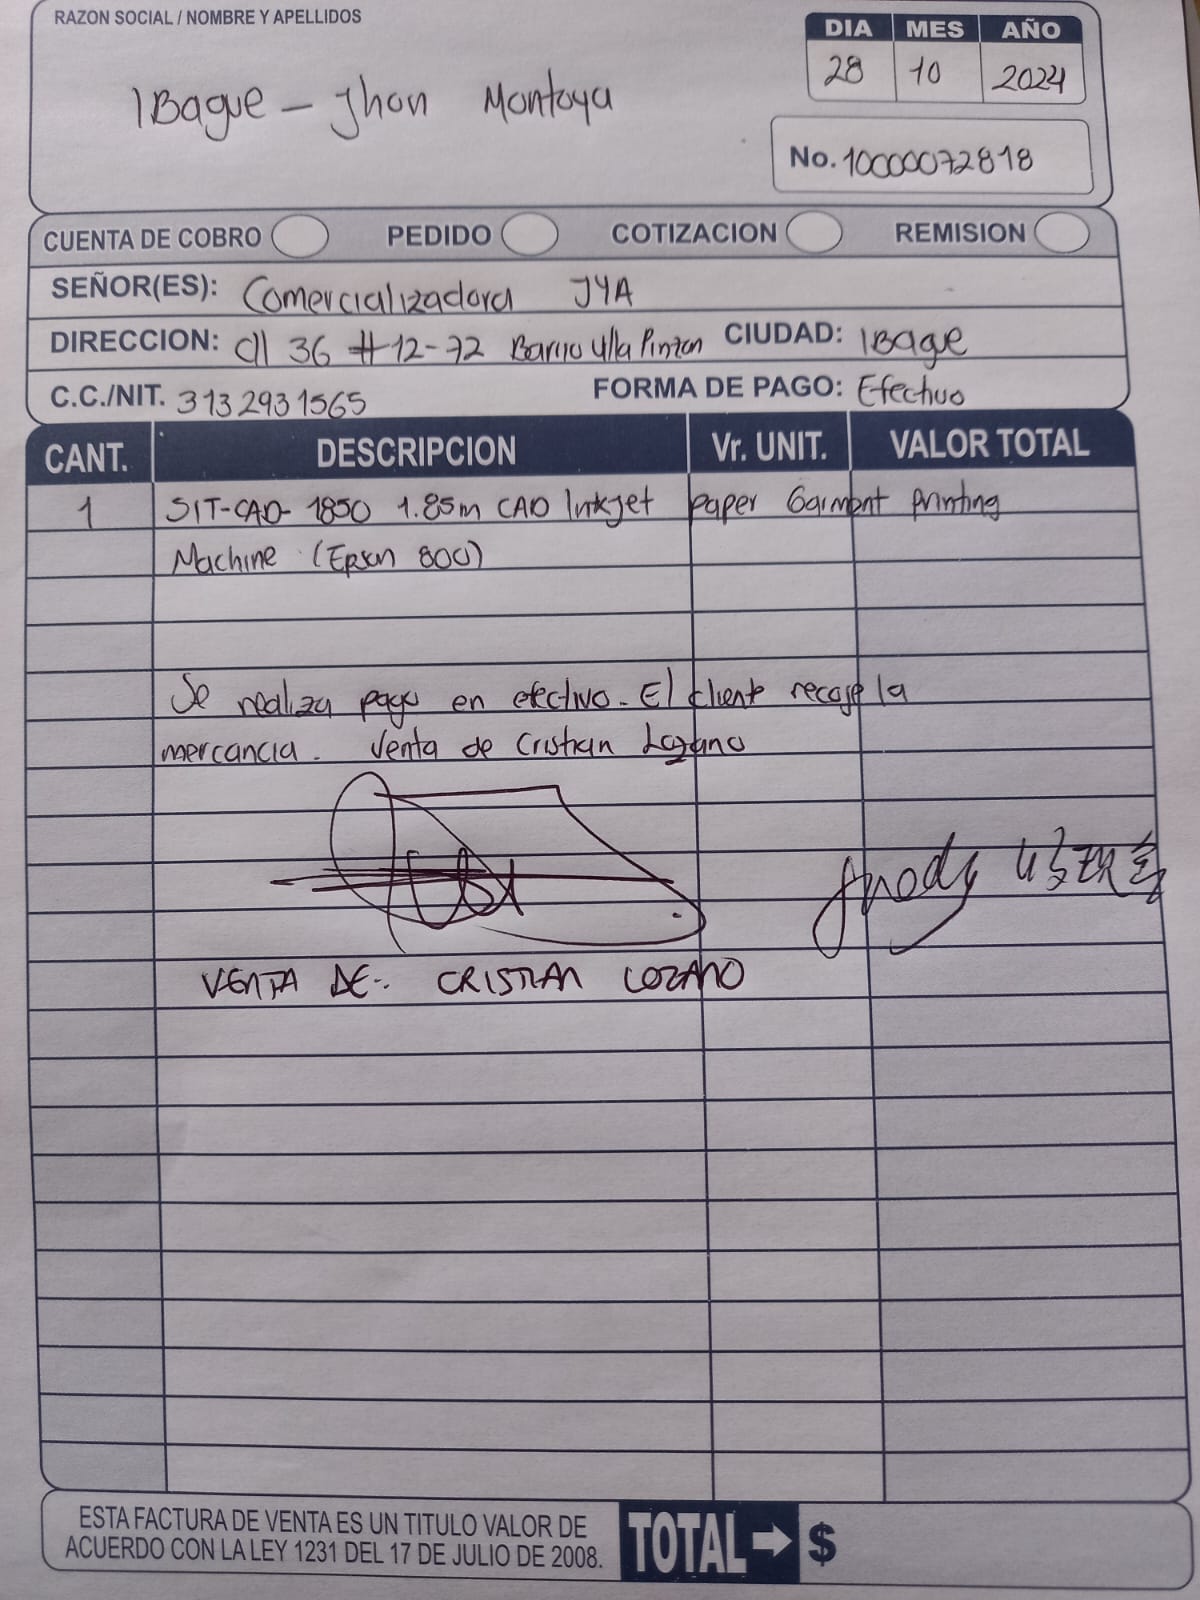 RAZON SOCIAL / NOMBRE Y APELLIDOS
DIA MES AÑO
28 10 2024
IBague - Jhon Montoya
No. 10000072818
CUENTA DE COBRO PEDIDO COTIZACION REMISION
SEÑOR(ES): Comercializadora JYA
DIRECCION: Cll 36 #12-72 Barrio Villa Pinzon CIUDAD: IBague
C.C./NIT. 3132931565 FORMA DE PAGO: Efectivo
CANT. DESCRIPCION Vr. UNIT. VALOR TOTAL
1 SIT-CAD-1850 1.85m CAD Inkjet paper Garment Printing
Machine (Epson 800)
Se realiza pago en efectivo. El cliente recoje la
mercancia. Venta de Cristian Lozano
VENTA DE: CRISTIAN LOZANO
ESTA FACTURA DE VENTA ES UN TITULO VALOR DE
ACUERDO CON LA LEY 1231 DEL 17 DE JULIO DE 2008.
TOTAL → $